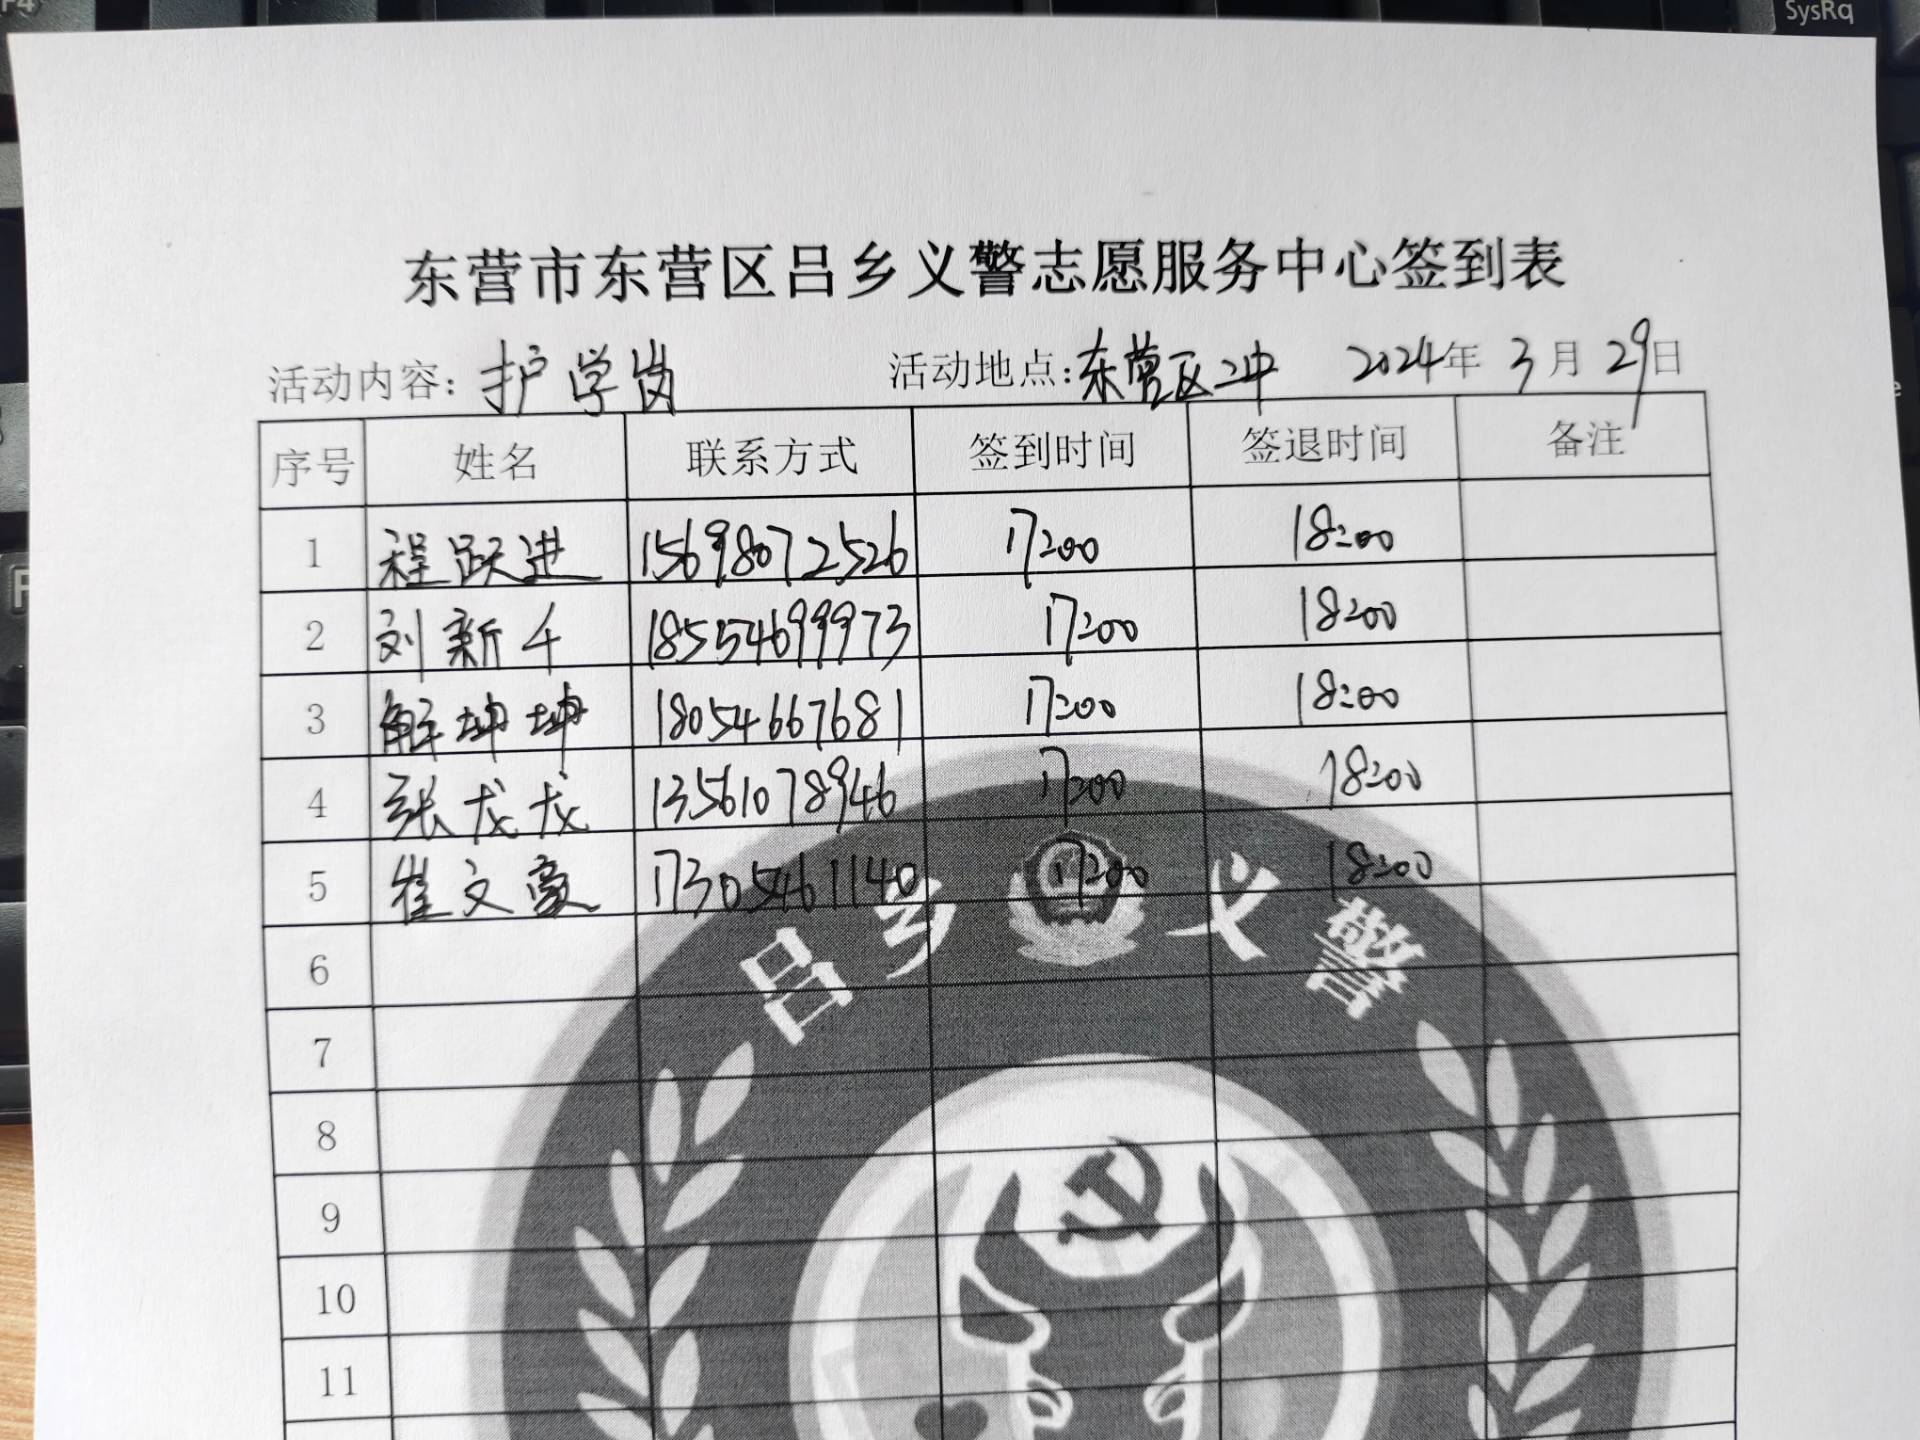 SysRq
F4
东营市东营区吕乡义警志愿服务中心签到表
活动内容: 护学岗 活动地点: 东营区二中 2024年 3月 29日
序号 姓名 联系方式 签到时间 签退时间 备注
1 程跃进 15698072526 17:00 18:00
2 刘新千 18554699973 17:00 18:00
3 解坤坤 18054667681 17:00 18:00
4 张龙龙 13561078946 17:00 18:00
5 崔文豪 17305461140 17:00 18:00
吕乡义警
6
7
8
9
10
11